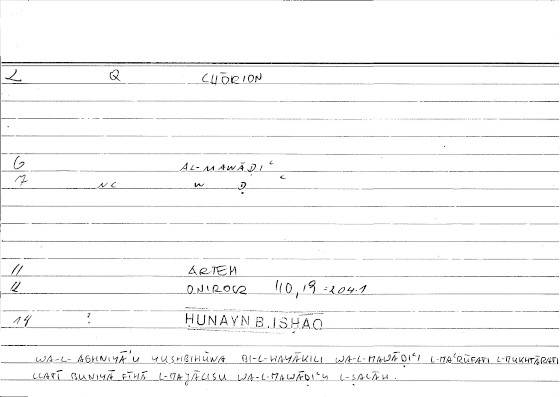 2 Q CHŌRION
6 AL-MAWĀḌIʿ
7 NC W Ḍ ʿ
11 ARTEM
12 ONIROCR 110,19 = 204.1
14 ? ḤUNAYN B. ISḤĀQ
WA-L-AGHNIYĀʾU YUSHBIHŪNA BI-L-HAYĀKILI WA-L-MAWĀḌIʿI L-MAʿRŪFATI L-MUKHTĀRATI
LLATĪ BUNIYA FĪHĀ L-MAJĀLISU WA-L-MAWĀḌIʿU L-ṢALĀH.